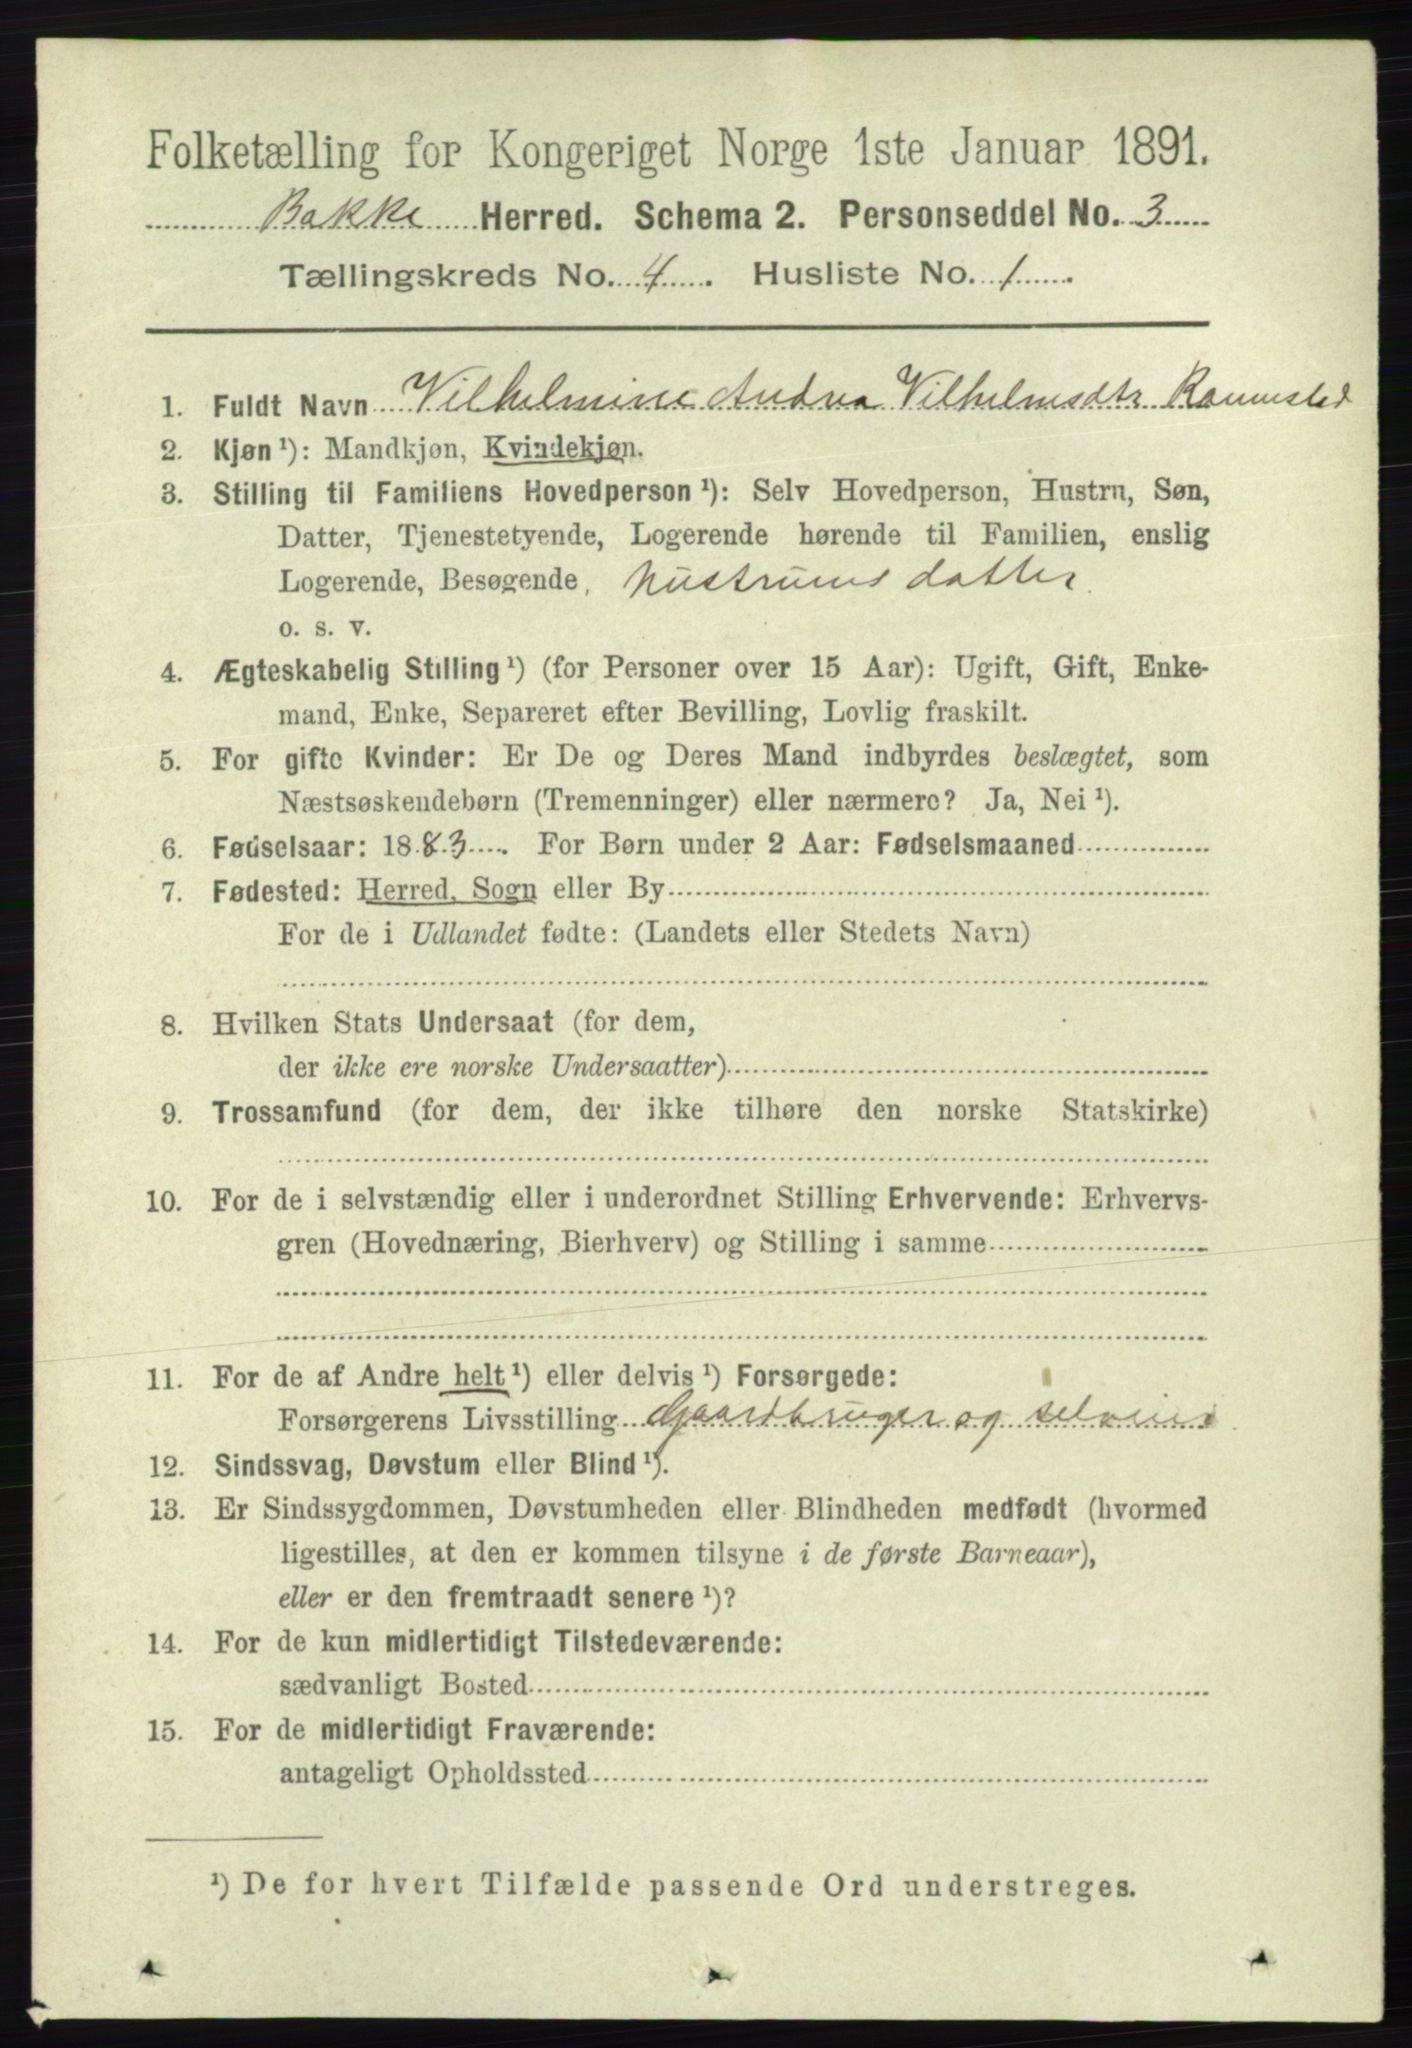 Folketælling for Kongeriget Norge 1ste Januar 1891.
Bakke Herred. Schema 2. Personseddel No. 3
Tællingskreds No. 4. Husliste No. 1.
1. Fuldt Navn Vilhelmine Andrea Vilhelmsdtr
2. Kjøn ¹): Mandkjøn, Kvindekjøn.
3. Stilling til Familiens Hovedperson ¹): Selv Hovedperson, Hustru, Søn,
Datter, Tjenestetyende, Logerende hørende til Familien, enslig
Logerende, Besøgende, Hustruens datter.
o. s. v.
4. Ægteskabelig Stilling ¹) (for Personer over 15 Aar): Ugift, Gift, Enke-
mand, Enke, Separeret efter Bevilling, Lovlig fraskilt.
5. For gifte Kvinder: Er De og Deres Mand indbyrdes beslægtet, som
Næstsøskendebørn (Tremenninger) eller nærmere? Ja, Nei ¹).
6. Fødselsaar: 1883. For Børn under 2 Aar: Fødselsmaaned
7. Fødested: Herred, Sogn eller By
For de i Udlandet fødte: (Landets eller Stedets Navn)
8. Hvilken Stats Undersaat (for dem,
der ikke ere norske Undersaatter)
9. Trossamfund (for dem, der ikke tilhøre den norske Statskirke)
10. For de i selvstændig eller i underordnet Stilling Erhvervende: Erhvervs-
gren (Hovednæring, Bierhverv) og Stilling i samme
11. For de af Andre helt ¹) eller delvis ¹) Forsørgede:
Forsørgerens Livsstilling Gaardbruger og selveier
12. Sindssvag, Døvstum eller Blind ¹).
13. Er Sindssygdommen, Døvstumheden eller Blindheden medfødt (hvormed
ligestilles, at den er kommen tilsyne i de første Barneaar),
eller er den fremtraadt senere ¹)?
14. For de kun midlertidigt Tilstedeværende:
sædvanligt Bosted
15. For de midlertidigt Fraværende:
antageligt Opholdssted
¹) De for hvert Tilfælde passende Ord understreges.